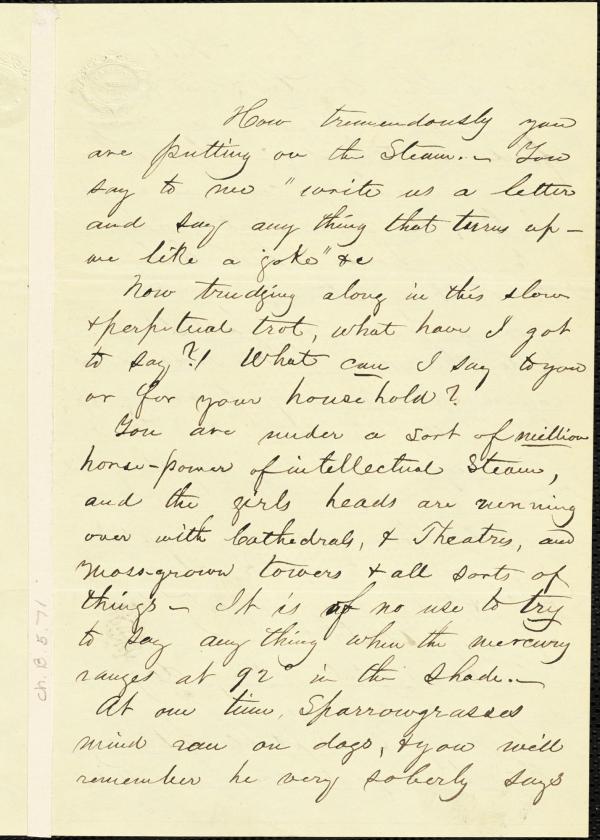 How tremendously you
are putting on the Steam.- You
say to me "write us a letter
and say any thing that turns up -
we like a joke" &c
Now trudging along in this slow
& perpetual trot, what have I got
to say?! What can I say to you
or for your household?
You are under a sort of million
horse-power of intellectual Steam,
and the girls heads are running
over with Cathedrals, & Theatres, and
Moss-grown towers & all sorts of
things - It is of no use to try
to say any thing when the mercury
ranges at 92° in the shade.-
At one time, Sparrowgrasses
mind ran on dogs, & you will
remember he very soberly says
ch.B.5.71